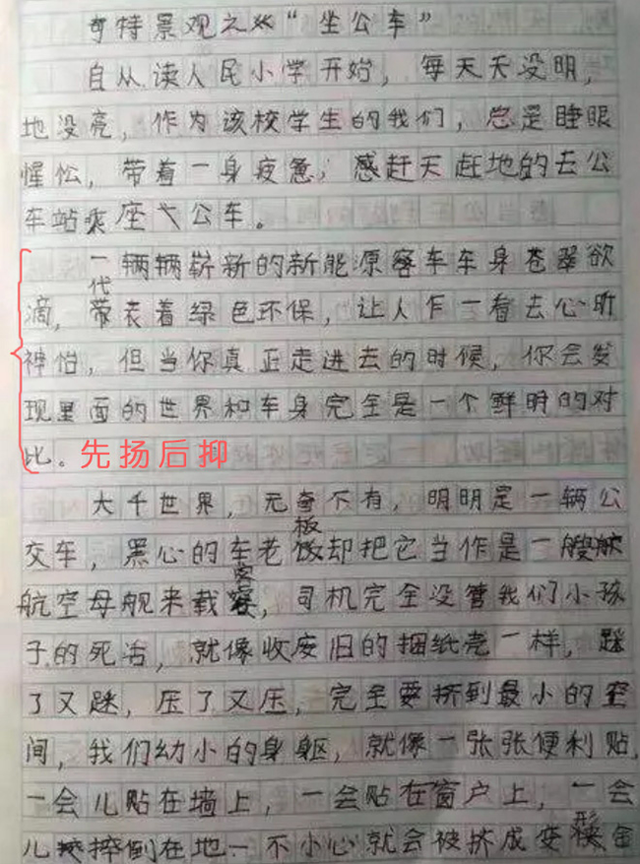 奇特景观之 “坐公车”
自从读人民小学开始，每天天没明，
地没亮，作为该校学生的我们，总是睡眼
惺忪，带着一身疲惫，感赶天赶地的去公
车站乘座公车。
一辆辆崭新的新能源客车车身苍翠欲
滴，带代表着绿色环保，让人乍一看去心旷
神怡，但当你真正走进去的时候，你会发
现里面的世界和车身完全是一个鲜明的对
比。先扬后抑
大千世界，无奇不有，明明是一辆公
交车，黑心的车老板却把它当作是一艘
航空母舰来载客，司机完全没管我们小孩
子的死活，就像收废旧的捆纸壳一样，跺
了又跺，压了又压，完全要挤到最小的空
间，我们幼小的身躯，就像一张张便利贴，
一会儿贴在墙上，一会贴在窗户上，一会
儿摔倒在地一不小心就会被挤成变形金